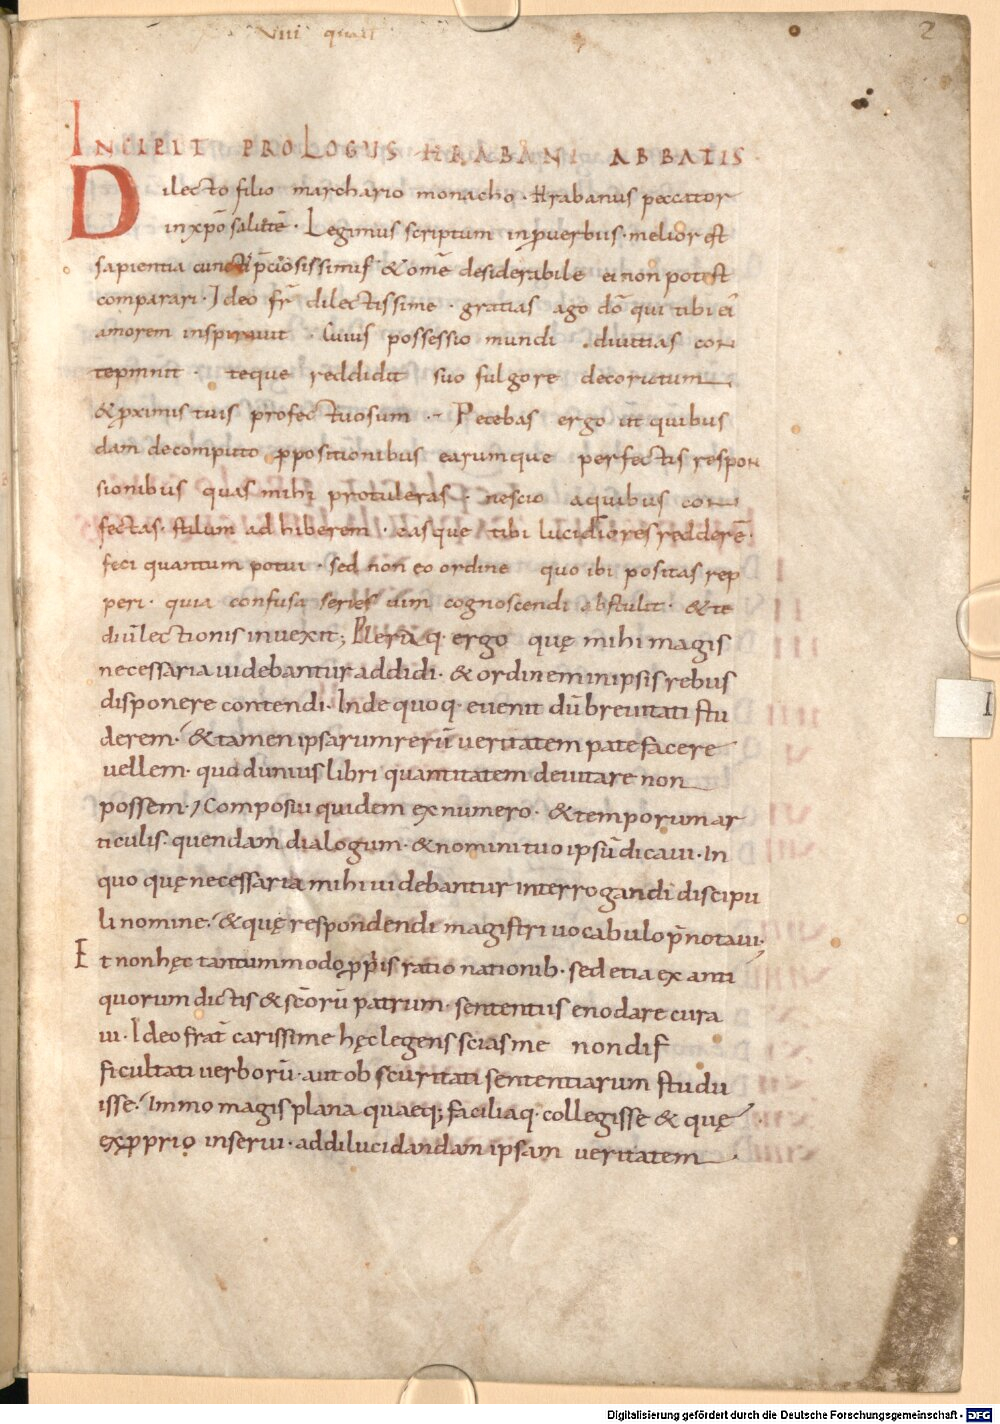 VIII quat
2
INCIPIT PROLOGUS HRABANI ABBATIS
Dilecto filio marchario monacho · Hrabanus peccator
in xpō salutē · Legimus scriptum in ꝓverbus · melior est
sapientia cunctis p̄ciosissimis & omē desiderabile ei non potest
comparari · Ideo fr̄ dilectissime · gratias ago dō qui tibi ei
amorem inspiravit · Cuius possessio mundi divitias con
tepmnit · teque reddidit suo fulgore decoratum
& ꝓximis tuis profectuosum · Petebas ergo ut quibus
dam de compoto ꝓpositionibus earumque perfectis respon
sionibus quas mihi protuleras · nescio a quibus con
fectas · stilum adhiberem · easque tibi lucidiores redderē ·
feci quantum potui · sed non eo ordine quo ibi positas rep
peri · quia confusa series vim cognoscendi abstulit · & te
diū lectionis invexit; Plerūq· ergo quę mihi magis
necessaria videbantur addidi · & ordinem in ipsis rebus
disponere contendi · Inde quoq· evenit dū brevitati stu
derem · & tamen ipsarum rerū veritatem patefacere
vellem · quod unius libri quantitatem devitare non
possem · Composui quidem ex numero · & temporum ar
ticulis · quendam dialogum · & nomini tuo ipsū dicavi · In
quo quę necessaria mihi videbantur interrogandi discipu
li nomine · & quę respondendi magistri vocabulo p̄notavi ·
Et non hęc tantummodo ꝓp̄iis ratiotinationib· sed etiā ex anti
quorum dictis & scōrū patrum · sententiis enodare cura
vi · Ideo frat̄ carissime hęc legens scias me non dif
ficultati verborū · aut obscuritati sententiarum studu
isse · Immo magis plana quaeq; faciliaq· collegisse & quę
ex ꝓprio inserui · ad dilucidandam ipsam veritatem
I
Digitalisierung gefördert durch die Deutsche Forschungsgemeinschaft - DFG